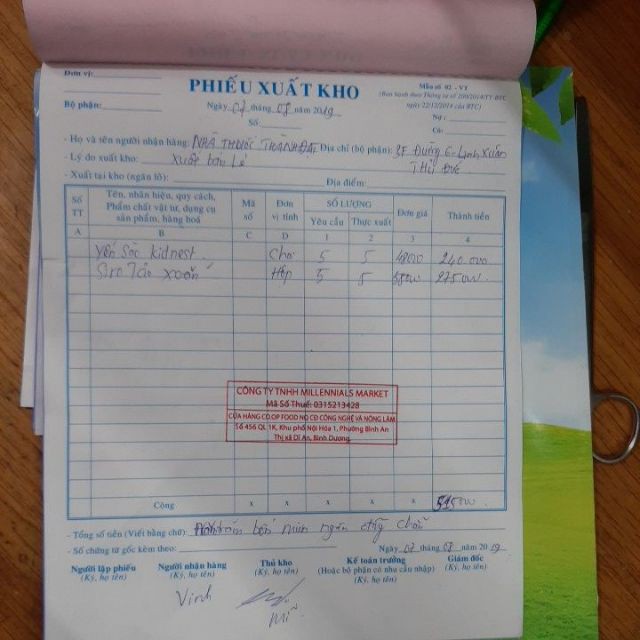 Đơn vị:
Bộ phận:
PHIẾU XUẤT KHO
Ngày 07 tháng 08 năm 2019
Số:
Mẫu số 02 - VT
(Ban hành theo Thông tư số 200/2014/TT-BTC
ngày 22/12/2014 của BTC)
Nợ:
Có:
- Họ và tên người nhận hàng: NHÀ THUỐC THÀNH ĐẠT Địa chỉ (bộ phận): 3F Đường 6-Linh Xuân
THỦ ĐỨC
- Lý do xuất kho: Xuất bán lẻ
- Xuất tại kho (ngăn lô): Địa điểm:
Số TT Tên, nhãn hiệu, quy cách, Phẩm chất vật tư, dụng cụ sản phẩm, hàng hoá Mã số Đơn vị tính SỐ LƯỢNG Yêu cầu Thực xuất Đơn giá Thành tiền
A B C D 1 2 3 4
Yến Sóc kidnest 5 5 48000 240.000
Siro Táo xoắn Hộp 5 5 55000 275000
CÔNG TY TNHH MILLENNIALS MARKET
Mã Số Thuế: 0315213428
CỬA HÀNG CO.OP FOOD NO CD CÔNG NGHỆ VÀ NÔNG LÂM
Số 456 QL 1K, Khu phố Nội Hóa 1, Phường Bình An
Thị xã Dĩ An, Bình Dương
Cộng x x x x 515000
- Tổng số tiền (Viết bằng chữ): trăm ngàn đồng chẵn
- Số chứng từ gốc kèm theo: Ngày 07 tháng 08 năm 2019
Người lập phiếu Người nhận hàng Thủ kho Kế toán trưởng Giám đốc
(Ký, họ tên) (Ký, họ tên) (Ký, họ tên) (Hoặc bộ phận có nhu cầu nhập) (Ký, họ tên)
(Ký, họ tên)
Vinh